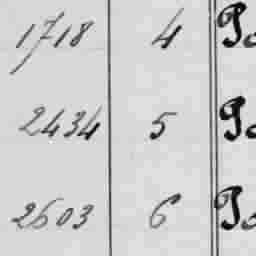 1718 4
2434 5
2603 6